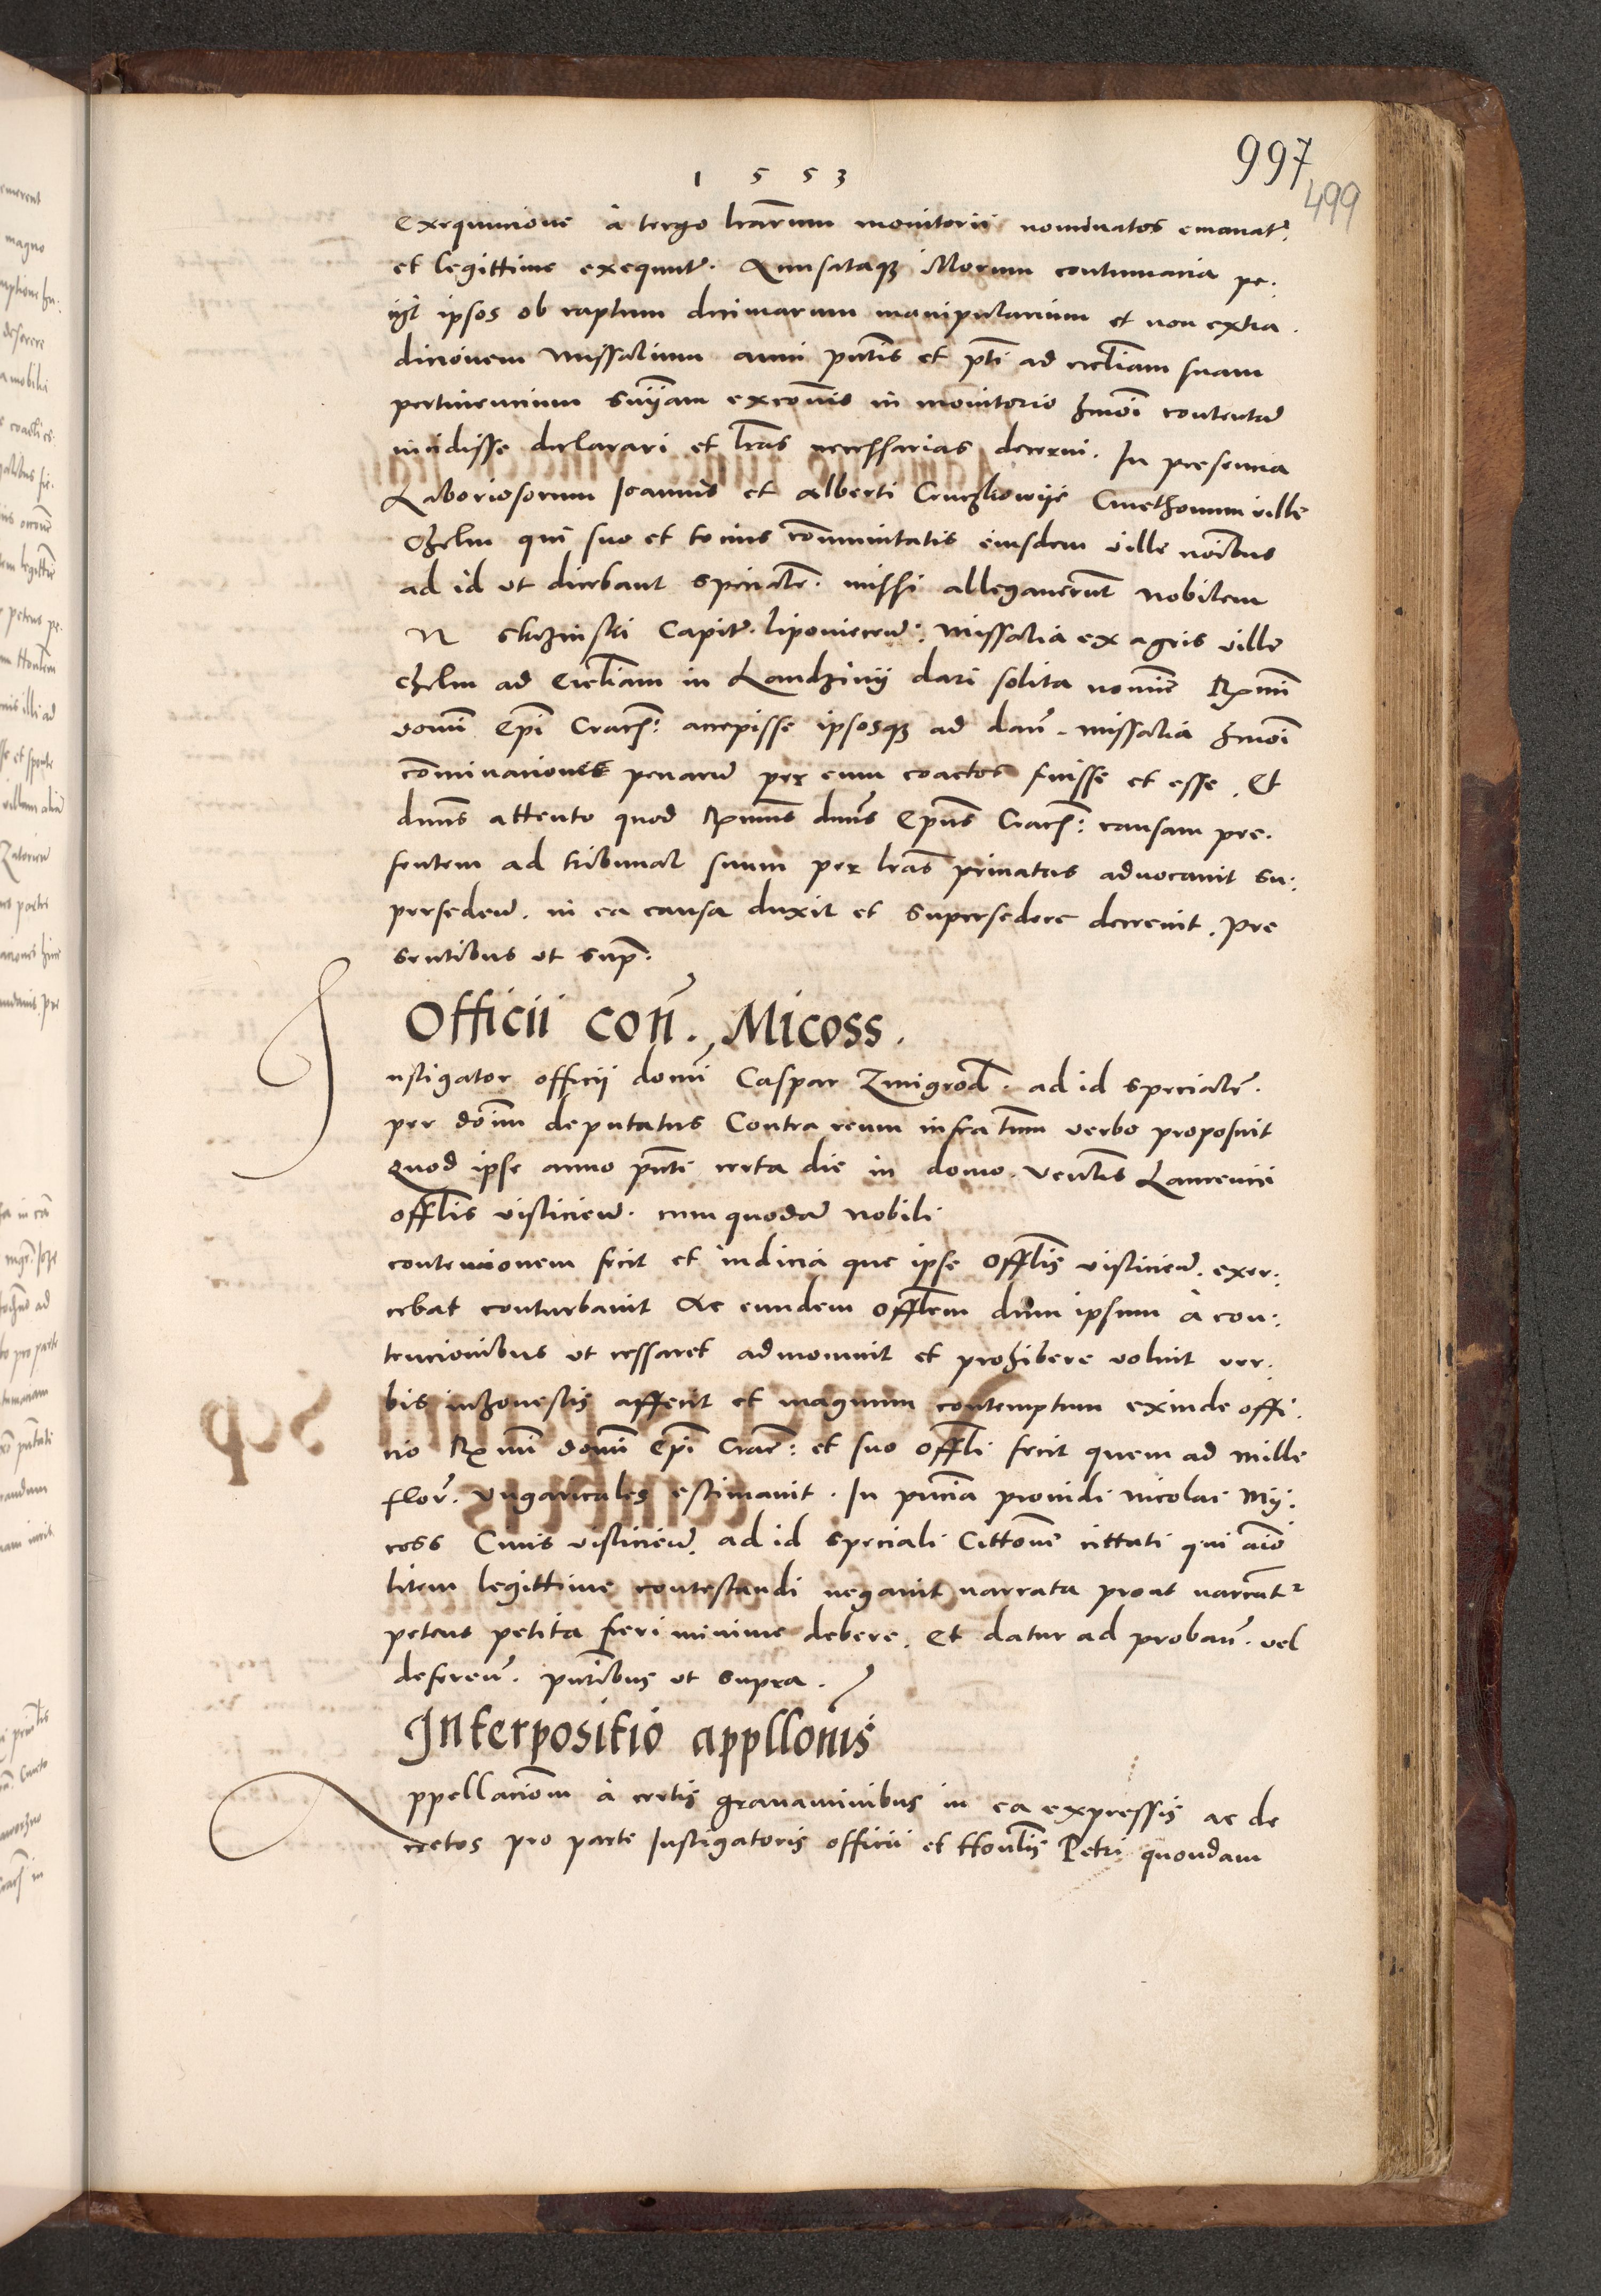 997
499
1 5 5 3
Exequucione à tergo lrarum monitorii nominatos emanatr:
et legittime exequutr. Accusataqz illorum contumacia pe:
iit ipsos ob raptum decimarum manipularium et non extra.
dicionem missalium anni pntis et pti ad ecctiam suam
pertinencium sniam excois in monitorio hmoi contentam
incidisse declarari et lras necessarias decerni. In presencia
Laboriosorum Joannis et alberti Cmethonum ville
Chelm qui suo et tocius communitatis eiusdem ville noibus
ad id ut dicebant specialr. missi allegauerunt nobilem
N Capit. lipouiecen: missalia ex agris ville
chelm ad Ecctiam in Landzinij dari solita nomine Rmi
domi Epi Crach: accepisse ipsosqz ad dan. missalia hmoi
cominationes penarum per eum coactos fuisse et esse. Et
dnus attento quod Rmus dnus Epus Crach: causam pre.
sentem ad tribunal suum per lras priuatas aduocauit su:
perseden. in ea causa duxit et supersedere decreuit. Pre
sentibus ut sup.
Officii con. Micoss.
Instigator officii domi Caspar Zmigrod. ad id specialr.
per doim deputatus Contra reum infratum verbo proposuit
Quod ipse anno pnti certa die in domo. ventis Laurencii
offlis visliciens. cum quodam nobili
contencionem fecit et iudicia que ipse Offlis visliciens. exer:
cebat conturbauit Ac eundem offlem dum ipsum à con:
tencionibus ut cessaret admonuit et prohibere voluit ver.
bis inhonestis affecit et magnum contemptum exinde offi.
cio Rmi domi Epi Crac: et suo offli fecit quem ad mille
flor. vngaricales estimauit. In pncia prouidi Nicolai My:
coss Ciuis visliciens. ad id speciali Cittone cittati qui aio
litem legittime contestandi negauit narrata prout narrantr
petens petita fieri minime debere. Et datur ad proban. vel
deferen. pntibus ut supra.
Interpositio appllonis
Appellaciom à certis grauaminibus in ea expressis ac de
cretos pro parte Instigatoris officii et Honlis Petri quondam